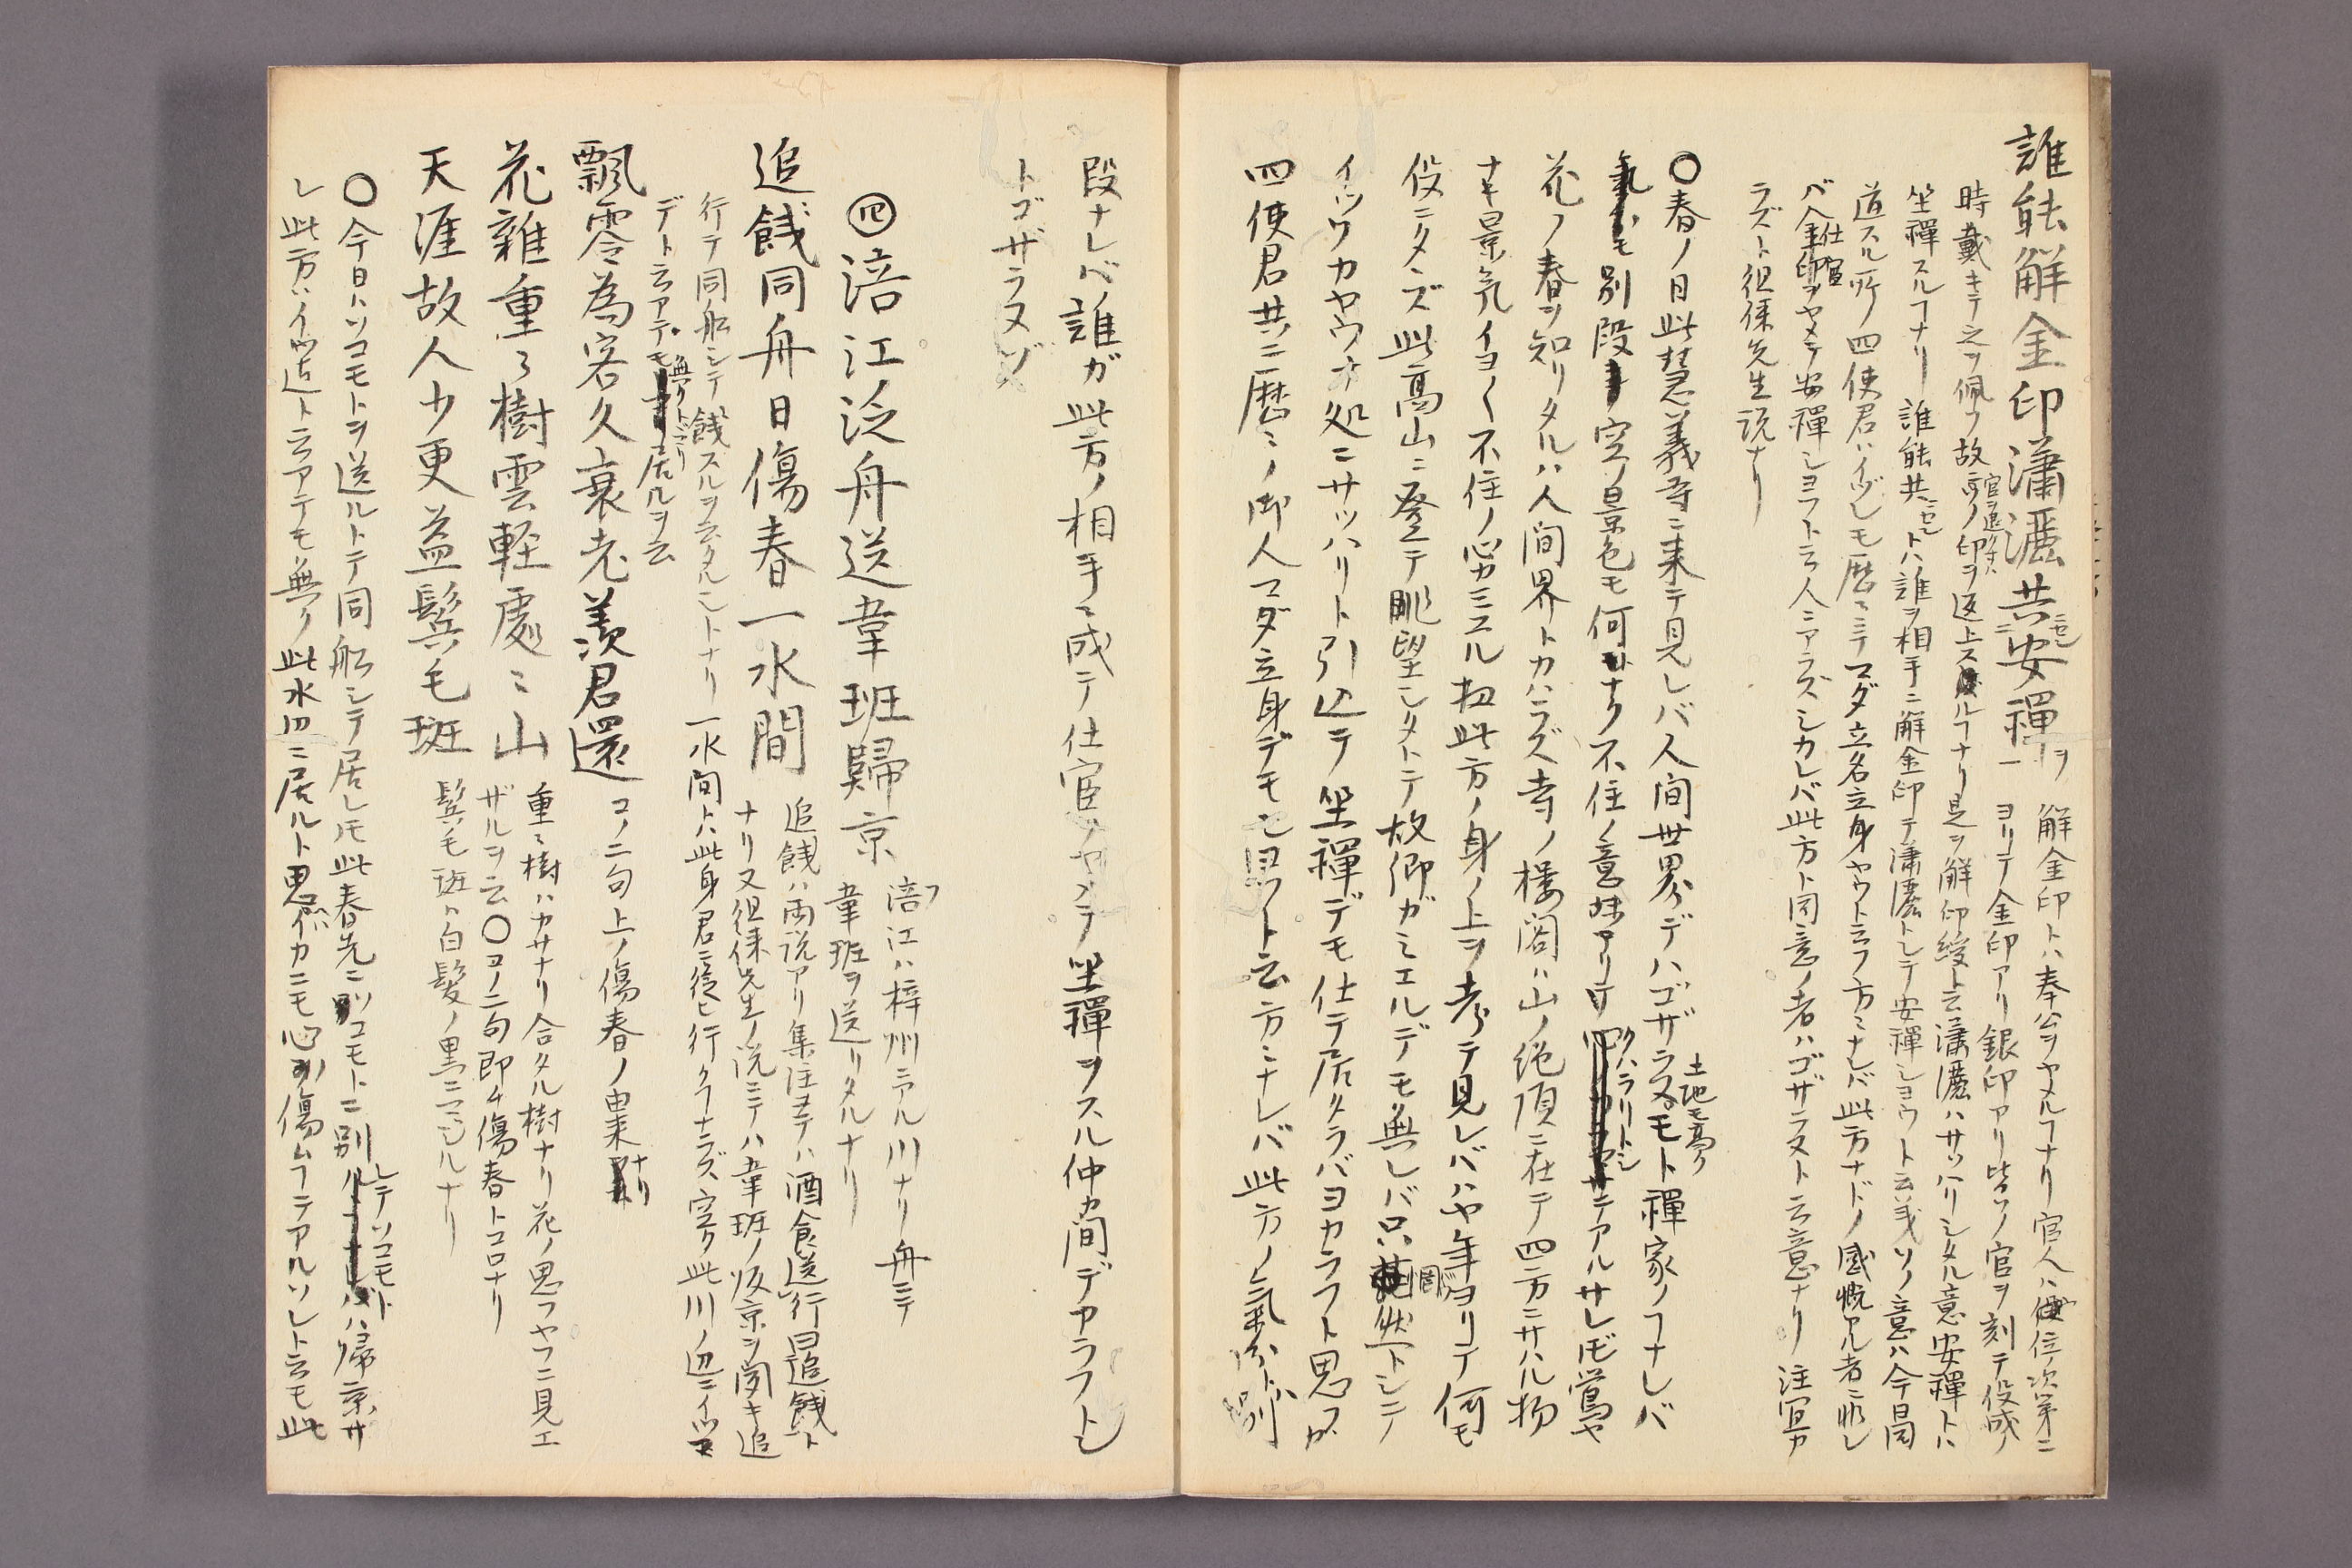 誰能解金印瀟灑共安禪 解金印トハ奉公ヲヤメルヿナリ官人ハ位ノ次第ニ
ヨリテ金印アリ銀印アリ皆ソノ官ヲ刻テ役成ノ
時戴キテ之ヲ佩フ故官ヲ退ク時ハソノ印ヲ返上スルヿナリ是ヲ解印綬ト云瀟灑ハサッハリシタル意安禪トハ
坐禪スルヿナリ誰能共ニセントハ誰ヲ相手ニ解金印テ瀟灑トシテ安禪シヨウト云義ソノ意ハ今日同
道スル所ノ四使君ハイヅレモ歴々ニテマダ立名立身ヤウト云フ方ミナレバ此方ナドノ感慨アル者ニ非レ
バ仕官ヲヤメテ安禪シヨフト云人ニアラズシカレバ此方ト同意ノ者ハゴザラヌト云意ナリ注宜カ
ラズト徂徠先生説ナリ
〇春ノ日此慧義寺ニ来テ見レバ人間世界デハゴザラヌ土地モ高クモト禪家ノヿナレバ
別段空ノ景色モ何ナク不住ノ意味アリテクハラリトシニアルサレ𪜈鶯ヤ
花ノ春ヲ知リタルハ人間界トカハラズ寺ノ樓閣ハ山ノ絶頂ニ在テ四方ニサハル物
ナキ景氣イヨ〱不住ノ心カミエル扨此方ノ身ノ上ヲ考テ見レバハヤ年ヨリテ何モ
役ニタヽズ此高山ニ登テ眺望シタトテ故郷ガミエルデモ無レバ只惘然トシテ
イッソカヤウナ処ニサッハリト引込テ坐禪デモ仕テ居タラバヨカラフト思フガ
四使君共ニ歴ミノ御人マダ立身デモセヨフト云方ミナレバ此方ノ氣分トハ別
段ナレバ誰ガ此方ノ相手ニ成テ仕官ヲヤメテ坐禪ヲスル仲カ間デアラフトモ
トゴザラヌゾ
㊃涪江泛舟送韋班歸京 涪江ハ梓州ニアル川ナリ舟ニテ
韋班ヲ送リタルナリ
追餞同舟日傷春一水間 追餞ハ両説アリ集注ニテハ酒食送行曰追餞ト
ナリ又徂徠先生ノ説ニテハ韋班ノ皈京ヲ聞キ追
行テ同船シテ餞スルヲ云タルントナリ一水間トハ此身君ニ從ヒ行クヿナラズ空ク此川ノ辺ニイツマ
デト云アテモ無クトマリ居ルヲ云
飄零為客久衰老羨君還 コノ二句上ノ傷春ノ由来ナリ
花雜重々樹雲軽處ミ山 重ミ樹ハカサナリ合タル樹ナリ花ノ思フヤフニ見エ
ザルヲ云〇コノ二句即チ傷春トコロナリ
天涯故人少更益鬢毛斑 鬢毛斑ハ白髪ノ黒ニマジルナリ
〇今日ハソコモトヲ送ルトテ同船シテ居レ𪜈此春先ニソコモトニ別レテソコモトハ帰京サ
レ此方ハイツ迄ト云アテモ無ク此水辺ニ居ルト思ヘバイカニモ心ヲ傷ムヿテアルソレト云モ此